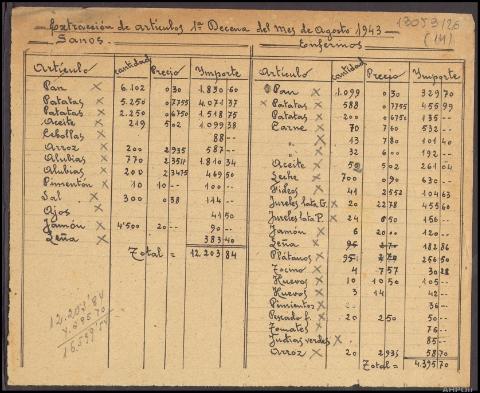 Extracción de artículos 1ª Decena del Mes de Agosto 1943
13053/26
(14)
Sanos
Artículo cantidad Precio Importe
Pan x 6.102 0 30 1.830 60
Patatas x 5.250 0 7755 4.071 37
Patatas x 2.250 0 6750 1.518 75
Aceite x 219 5 02 1.099 38
Cebollas x 88 --
Arroz x 200 2 935 587 --
Alubias x 770 2 3511 1.810 34
Alubias x 200 2 3475 469 50
Pimentón x 10 10 -- 100 --
Sal x 300 0 38 114 --
Ajos x 41 50
Jamón x 4'500 20 -- 90 --
Leña x 383 40
Total = 12.203 84
12.203'84
4.395 70
16.599'54
Enfermos
Artículo Cantidad Precio Importe
Pan x 1.099 0 30 329 70
x Patatas x 588 0 7755 455 99
Patatas x 200 0 6750 135 --
Carne x 70 7 60 532 --
" x 13 7 80 101 40
" x 32 6 00 192 --
Aceite x 52 5 02 261 04
Leche x 700 0 90 630 --
Fideos x 41 2 552 104 63
Jureles lata G. x 20 22 78 455 60
Jureles lata P. x 24 6 50 156 --
Jamón x 6 20 00 120 --
Leña x 182 86
Plátanos x 256 50
Tocino x 4 7 57 30 28
Huevos x 10 10 50 105 --
Huevos x 3 14 42 --
Pimientos x 36 --
Pescado f. x 20 2 50 50 --
Tomates x 76 --
Judías verdes x 85 --
Arroz x 20 2 935 58 70
Total = 4.395 70